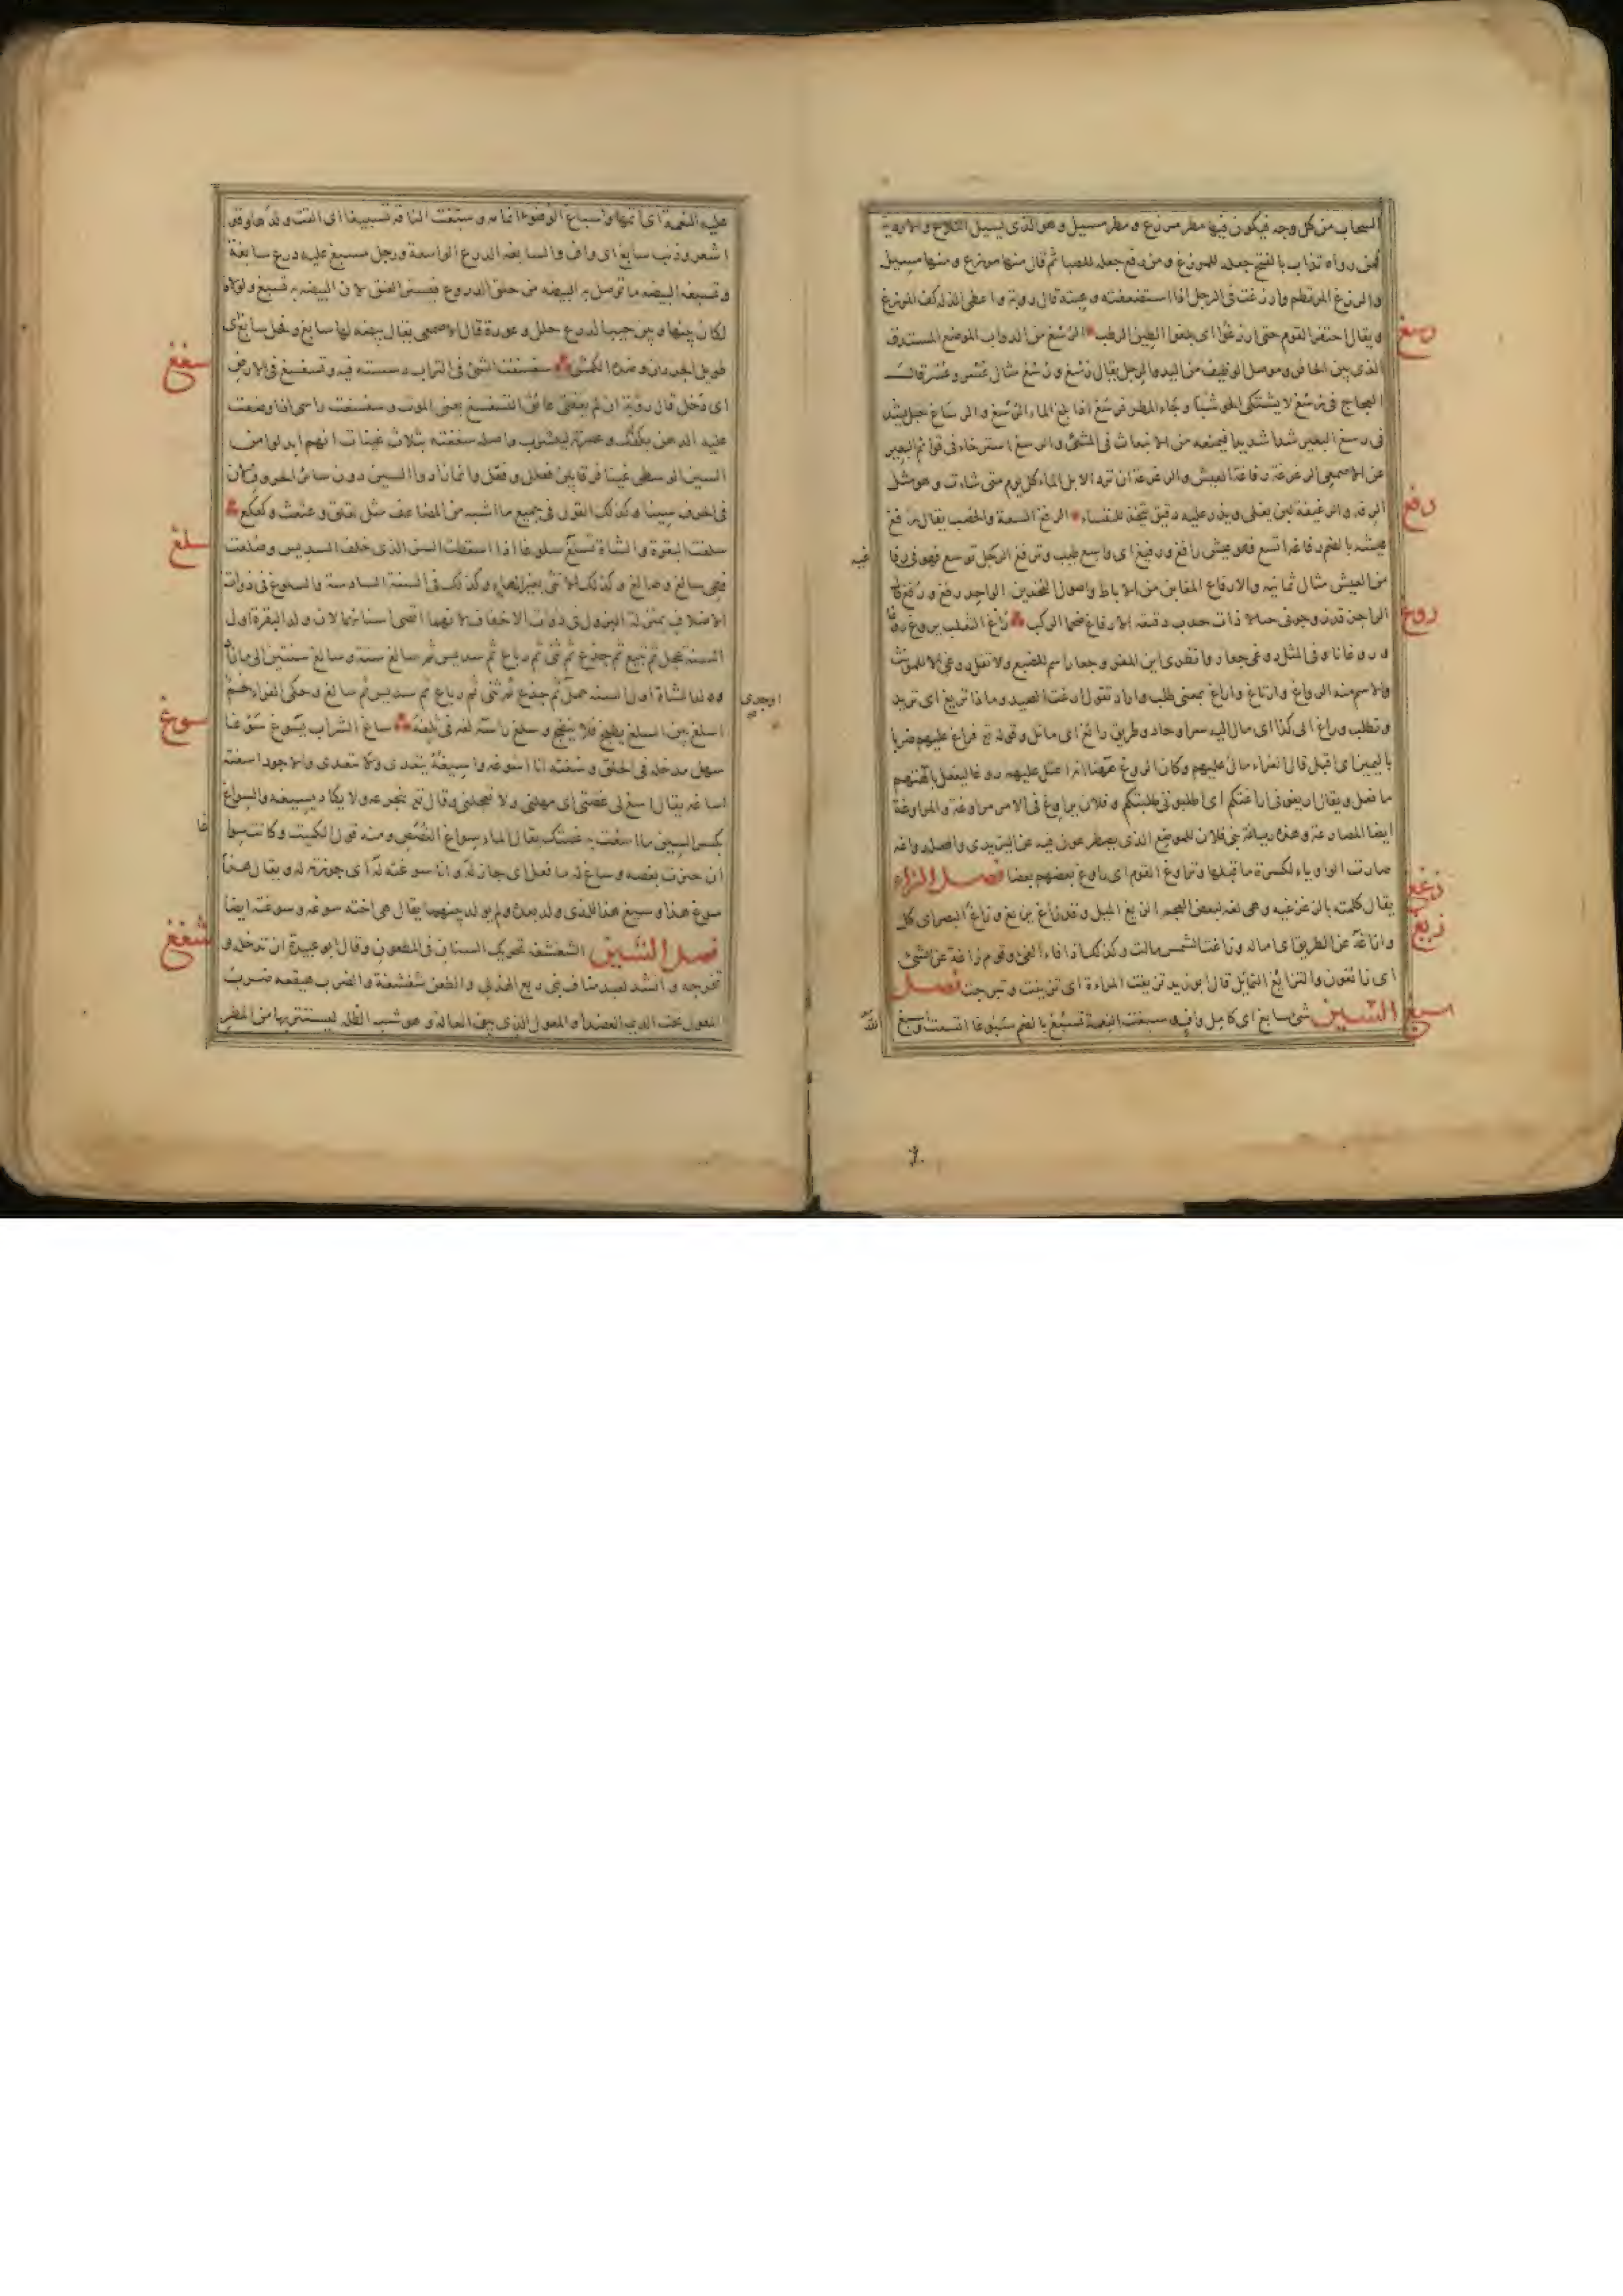 السحاب من كل وجه فيكون فيها مطر مرزغ و مطر مسيل وهو الذى يسيل التلاع والاودية
فمن رواه تذاب بالفتح جعله للمرزغ و من رفع جعله للصبا ثم قال منها مرزغ و منها مسيل
والرزغ المرتطم وارزغت فى الرجل اذا استضعفته وعبته قال روبة واعطى الذلة كف المرزغ
ويقال احتفر القوم حتى ارزغوا اى بلغوا الطين الرطب الرسغ من الدواب الموضع المستدق
رسغ
الذى بين الحافر وموصل الوظيف من اليد والرجل يقال رسغ و رسغ مثال عسر وعسر قال
العجاج فى رسغ لا يتشكى الحوشبا وجاء المطر فرسغ اذا بلغ الماء الرسغ والرساغ حبل يشد
فى رسغ البعير شدا شديدا فيمنعه من الانبعاث فى المشى والرسغ استرخاء فى قوائم البعير
عن الاصمعى الرغرغة رفاغة العيش والرغرغة ان ترد الابل الماء كل يوم متى شاءت وهو مثل
الرفه والرغيغة لبن يغلى ويذر عليه دقيق يتخذ للنفساء الرفغ السعة والخصب يقال رفغ
رفغ
عيشه بالضم رفاغة اتسع فهو عيش رافغ ورفيغ اى واسع طيب وترفغ الرجل توسع فهو فى رفا
غية
من العيش مثال ثمانية والارفاغ المغابن من الاباط واصول الفخذين الواحد رفغ و رفغ قال
الراجز قد زوجونى جيالا ذات حدب دقيقة الارفاغ ضخما الركب راغ الثعلب يروغ روغا
روغ
و روغانا وفى المثل روغى جعار وانظرى اين المفر وجعار اسم للضبع ولا تقل روغى الا للمونث
والاسم منه الرواغ وارتاغ واراغ بمعنى طلب واراد تقول ارغت الصيد وماذا تريغ اى تريد
وتطلب وراغ الى كذا اى مال اليه سرا وحاد وطريق رائغ اى مائل وقوله تع فراغ عليهم ضربا
باليمين اى اقبل قال الفراء مال عليهم وكان الروغ ههنا انه اعتل عليهم روغا ليفعل بآلهتهم
ما فعل ويقال اريغونى اراغتكم اى اطلبونى طلبتكم و فلان يراوغ فى الامر مراوغة والمراوغة
ايضا المصارعة وهذه رياغة بنى فلان للموضع الذى يصطرعون فيه عن اليزيدى واصله رواغة
صارت الواو ياء لكسرة ما قبلها وتراوغ القوم اى راوغ بعضهم بعضا فصل الزاء
زغغ
يقال كلمته بالزغزغية وهى لغة لبعض العجم الزيغ الميل وقد زاغ يزيغ وزاغ البصر اى كل
زيغ
وازاغه عن الطريق اى اماله وزاغت الشمس مالت وكذلك اذا فاء الفئ وقوم زاغة عن الشئ
اى زائغون والتزايغ التمايل قال ابو زيد تزيغت المراءة اى تزينت وتبرجت فصل
السين شئ سابغ اى كامل واف وسبغت النعمة تسبغ بالضم سبوغا اتسعت واسبغ
سبغ
الله
عليه النعمة اى اتمها واسباغ الوضوء اتمامه وسبغت الناقة تسبيغا اى القت ولدها وقد
اشعر وذنب سابغ اى واف والسابغة الدرع الواسعة ورجل مسبغ عليه درع سابغة
وتسبغة البيضة ما توصل به البيضة من حلق الدروع فتستر العنق لان البيضة به تسبغ ولولاه
لكان بينها وبين جيب الدرع خلل وعورة قال الاصمعى يقال بيضة لها سابغ وفحل سابغ اى
طويل الجردان وضده الكمش سغسغت الشئ فى التراب دسسته فيه وتسغسغ فى الارض
سغغ
اى دخل قال روبة ان لم يعقنى عائق التسغسغ يعنى الموت وسغسغت راسى اذا وضعت
عليه الدهن بكفك وعصرته ليتشرب واصله سغغته بثلاث غينات الا انهم ابدلوا من
الغين الوسطى سينا فرقا بين فعلل وفعل وانما زادوا السين دون سائر الحروف لان
فى الحرف سينا وكذلك القول فى جميع ما اشبهه من المضاعف مثل لقلق وعثعث وكعكع
سلغت البقرة والشاة تسلغ سلوغا اذا اسقطت السن الذى خلف السديس وصلغت
سلغ
فهى سالغ وصالغ وكذلك الانثى بغير الهاء وكذلك فى السنة السادسة والسلوغ فى ذوات
الاظلاف بمنزلة البزول فى ذوات الاخفاف لانهما اقصى اسنانهما لان ولد البقرة اول
السنة عجل ثم تبيع ثم جذع ثم ثنى ثم رباع ثم سديس ثم سالغ سنة وسالغ سنتين الى ما زاد
وولد الشاة اول السنة حمل ثم جذع ثم ثنى ثم رباع ثم سديس ثم سالغ وحكى الفراء لحم
او جدى
اسلغ بين السلغ يطبخ فلا ينضج وسلغ راسه لغة فى ثلغه ساغ الشراب يسوغ سوغا
سوغ
سهل مدخله فى الحلق وسغته انا اسوغه واسيغه يتعدى ولا يتعدى والاجود اسغته
اساغة يقال اسغ لى غصتى اى مهلنى ولا تعجلنى وقال تع يتجرعه ولا يكاد يسيغه والسواغ
بكسر السين ما اسغت به غصتك يقال الماء سواغ الغصص ومنه قول الكميت وكانت سوا
غا
ان جئزت بغصة وساغ له ما فعل اى جاز له وانا سوغته له اى جوزته له ويقال هذا
سوغ هذا وسيغ هذا للذى ولد بعده ولم يولد بينهما يقال هى اخته سوغه وسوغته ايضا
فصل الشين الشغشغة تحريك السنان فى المطعون وقال ابو عبيدة ان تدخله و
شغغ
تخرجه وانشد لعبد مناف بن ربع الهذلى والطعن شغشغة والضرب هيقعة ضرب
المعول تحت الديمة العضدا والمعول الذى يبنى العالة وهو شبه الظلة ليستتر بها من المطر